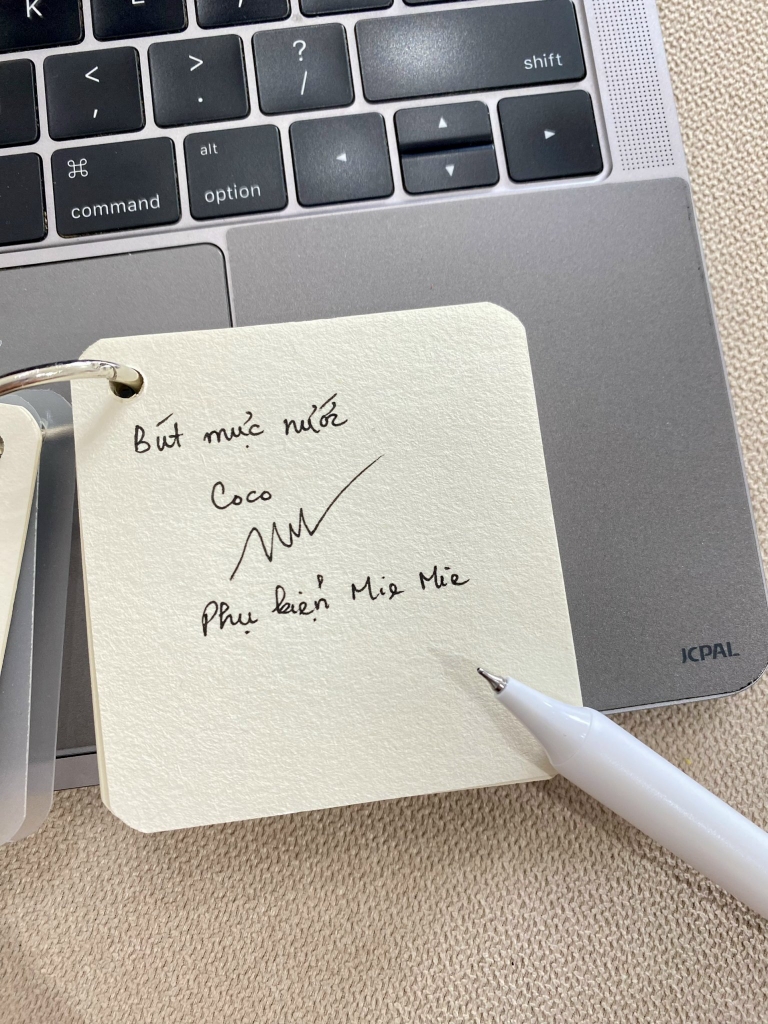 K
< > ?
, . / shift
⌘ alt ◀ ▲ ▶
command option ▼
Bút mực nước
Coco
Phụ kiện Mie Mie
JCPAL